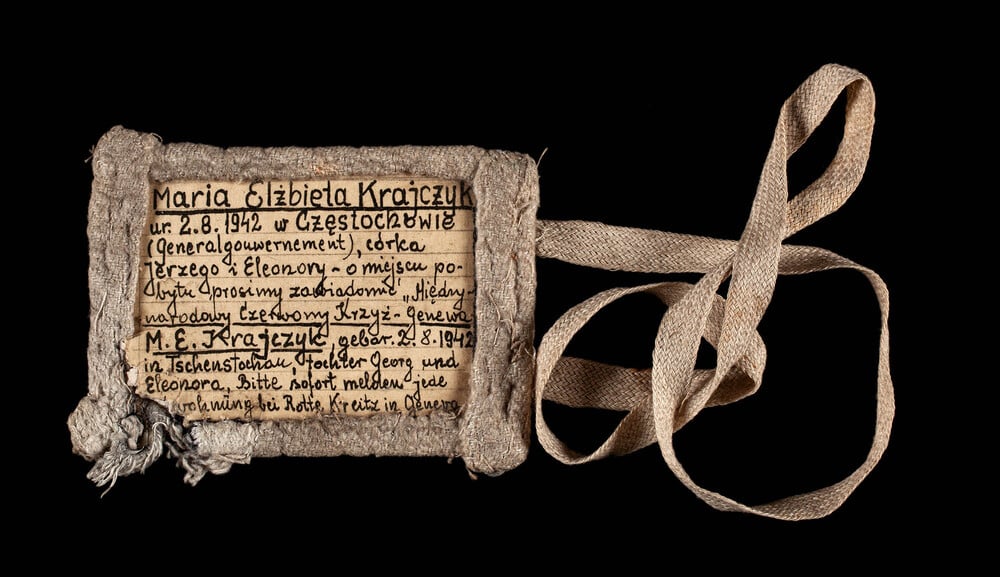 Maria Elżbieta Krajczyk
ur. 2.8.1942 w Częstochowie
(Generalgouwernement), córka
Jerzego i Eleonory - o miejscu po-
bytu prosimy zawiadomić „Między-
narodowy Czerwony Krzyż - Genewa
M. E. Krajczyk, gebor. 2. 8. 1942
in Tschenstochau, tochter Georg und
Eleonora, Bitte sofort melden jede
bei Rotte Kreitz in Geneva